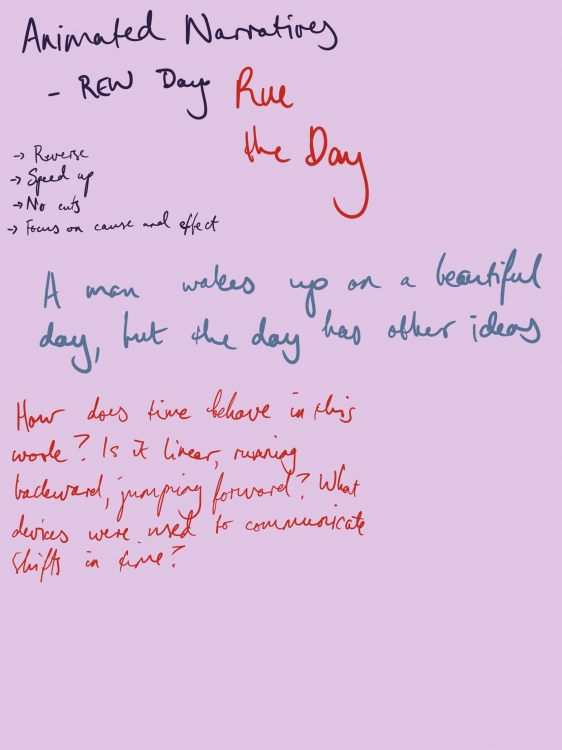 Animated Narratives
- REW Day Rue
the Day
→ Reverse
→ Speed up
→ No cuts
→ Focus on cause and effect
A man wakes up on a beautiful
day, but the day has other ideas
How does time behave in this
work? Is it linear, running
backward, jumping forward? What
devices were used to communicate
shifts in time?